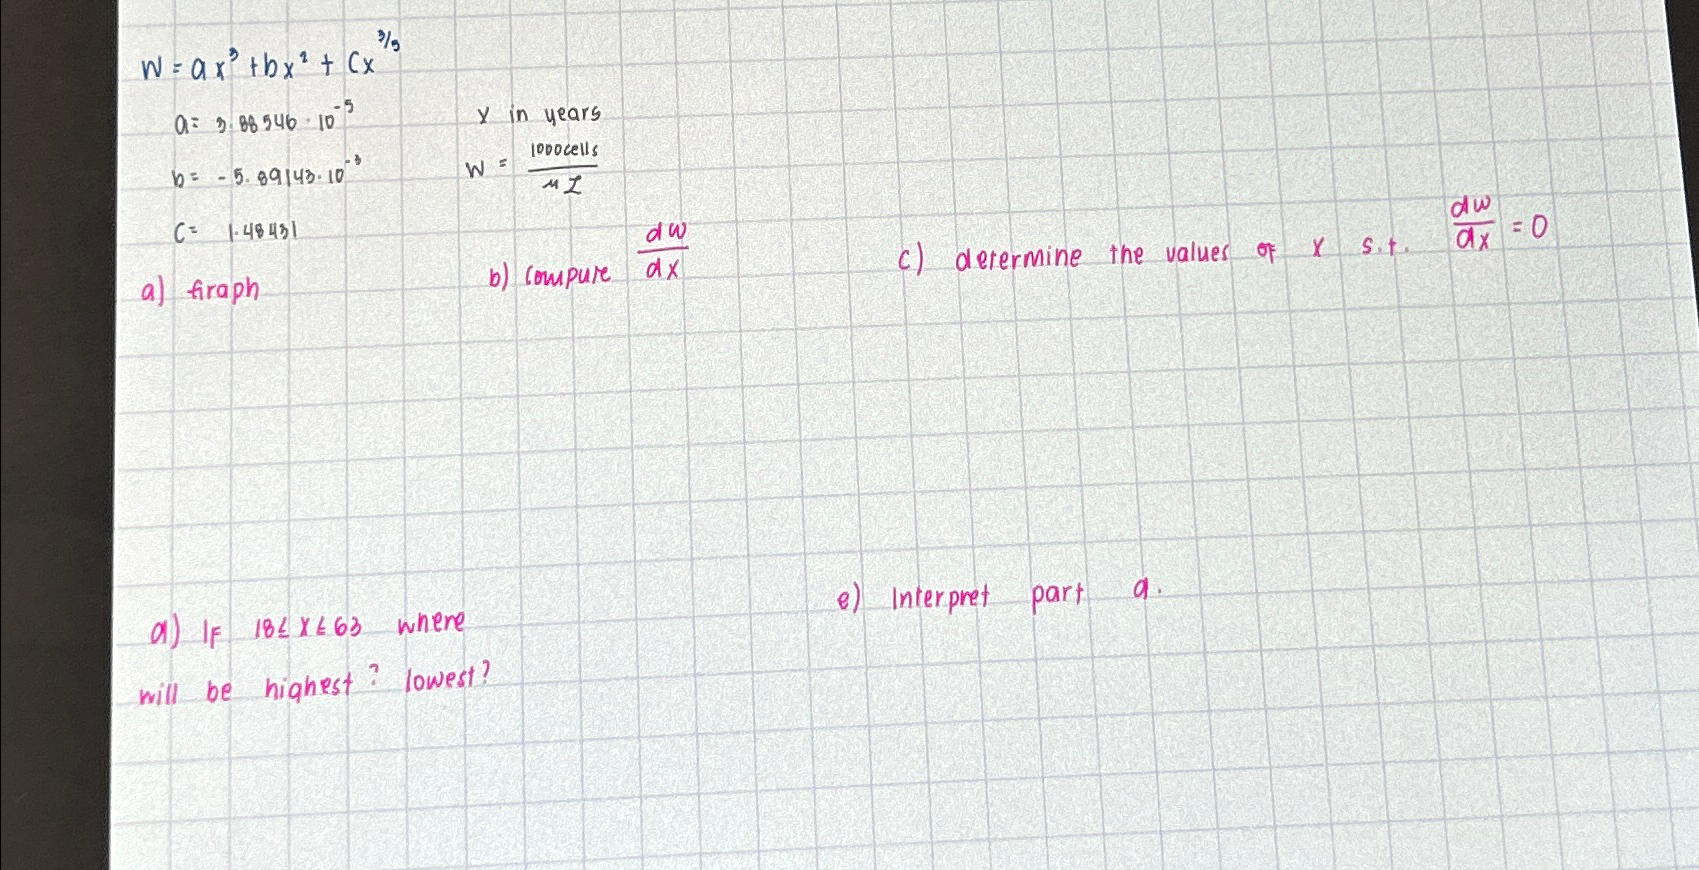 W = ax³ + bx² + Cx^3/5
a = 3.88546 · 10^-5
x in years
b = -5.89143 · 10^-3
W = 1000cells / μL
C = 1.48431
a) Graph
b) compute dw/dx
c) determine the values of x s.t. dw/dx = 0
d) If 18 ≤ x ≤ 63 where
will be highest? lowest?
e) Interpret part d.